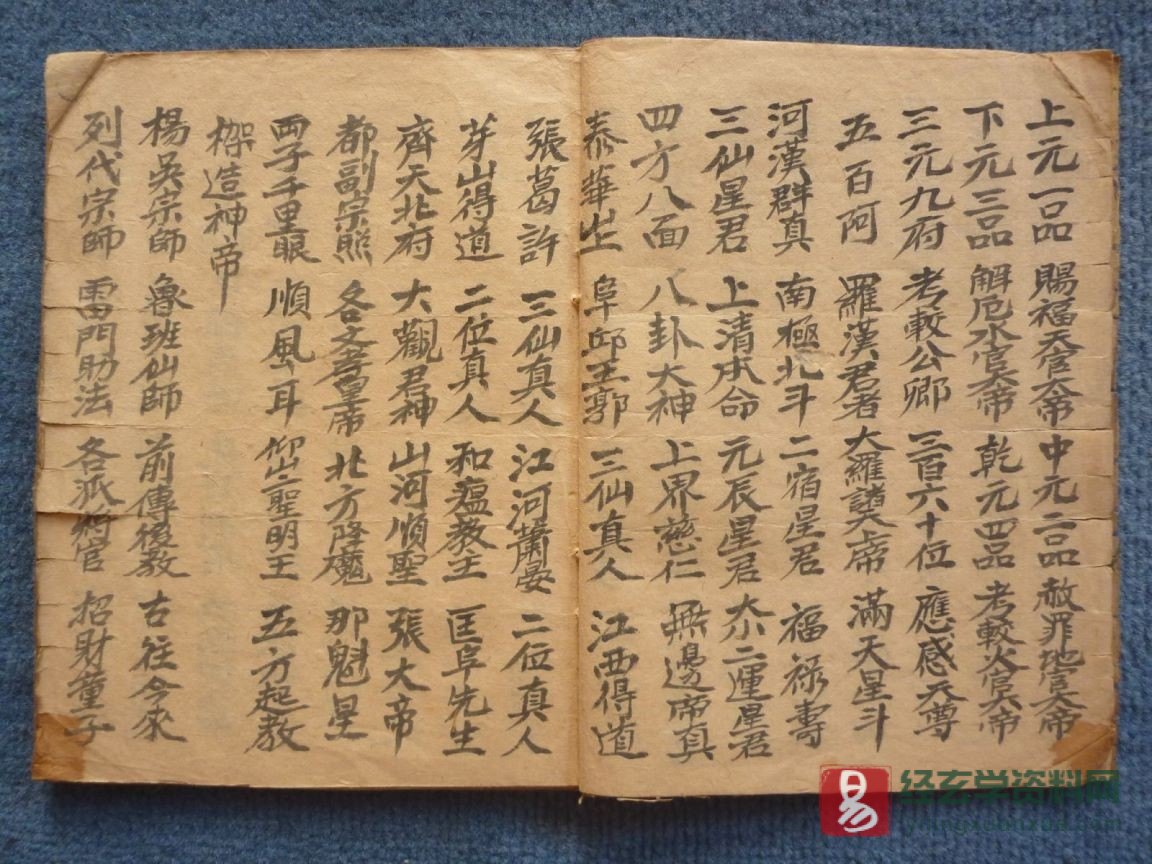 上元一品 賜福天官大帝 中元二品 赦罪地官大帝
下元三品 解厄水官大帝 乾元四品 考較火官大帝
三元九府 考較公卿 三百六十位 應感天尊
五百阿 羅漢君者 大羅讃上帝 滿天星斗
河漢群真 南極北斗 二宿星君 福祿壽
三仙星君 上清本命 元辰星君 大小二運星君
四方八面 八卦大神 上界慈仁 無邊帝真
泰華生 阜邱王郭 三仙真人 江西得道
張葛許 三仙真人 江河蕭晏 二位真人
芽山得道 二位真人 和瘟教主 匡阜先生
齊天北府 大觀君神 山河順聖 張大帝
都副宗照 各文孝皇帝 北方降魔 那魁星
両子千里眼 順風耳 仰山聖明王 五方起教
造神帝
楊吳宗師 魯班仙師 前傳後教 古往今來
列代宗師 雷門助法 各派將官 招財童子
易 经玄学资料网